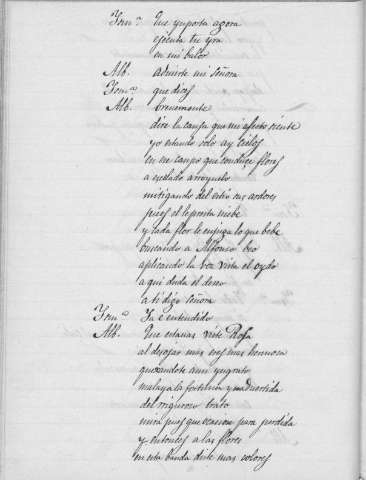 Yom.ª Que ynporta agora
ejecuta tu yra
en mi balor
Alb. advierte mi señora
Yom.ª que dices
Alb. brevemente
dire la causa que mi afecto siente
yo estando solo ay cielos
en un canpo que conduçe flores
a elado arroyuelo
mitigando del estio sus ardores
pues el le presta nieve
y cada flor le enjuga lo que bebe
buscando a Alfonso beo
aplicando la voz vista el oydo
a qui duda el deseo
a ti digo señora
Yom.ª Ya e entendido
Alb. Que estavas vite Rosa
al desojar mas eres mas hermosa
quexandote a un yngrato
mal aya la fortuna y advertida
del riguroso trato
mira pues que ocasion para perdida
y entonces a las flores
en esta banda diste mas colores